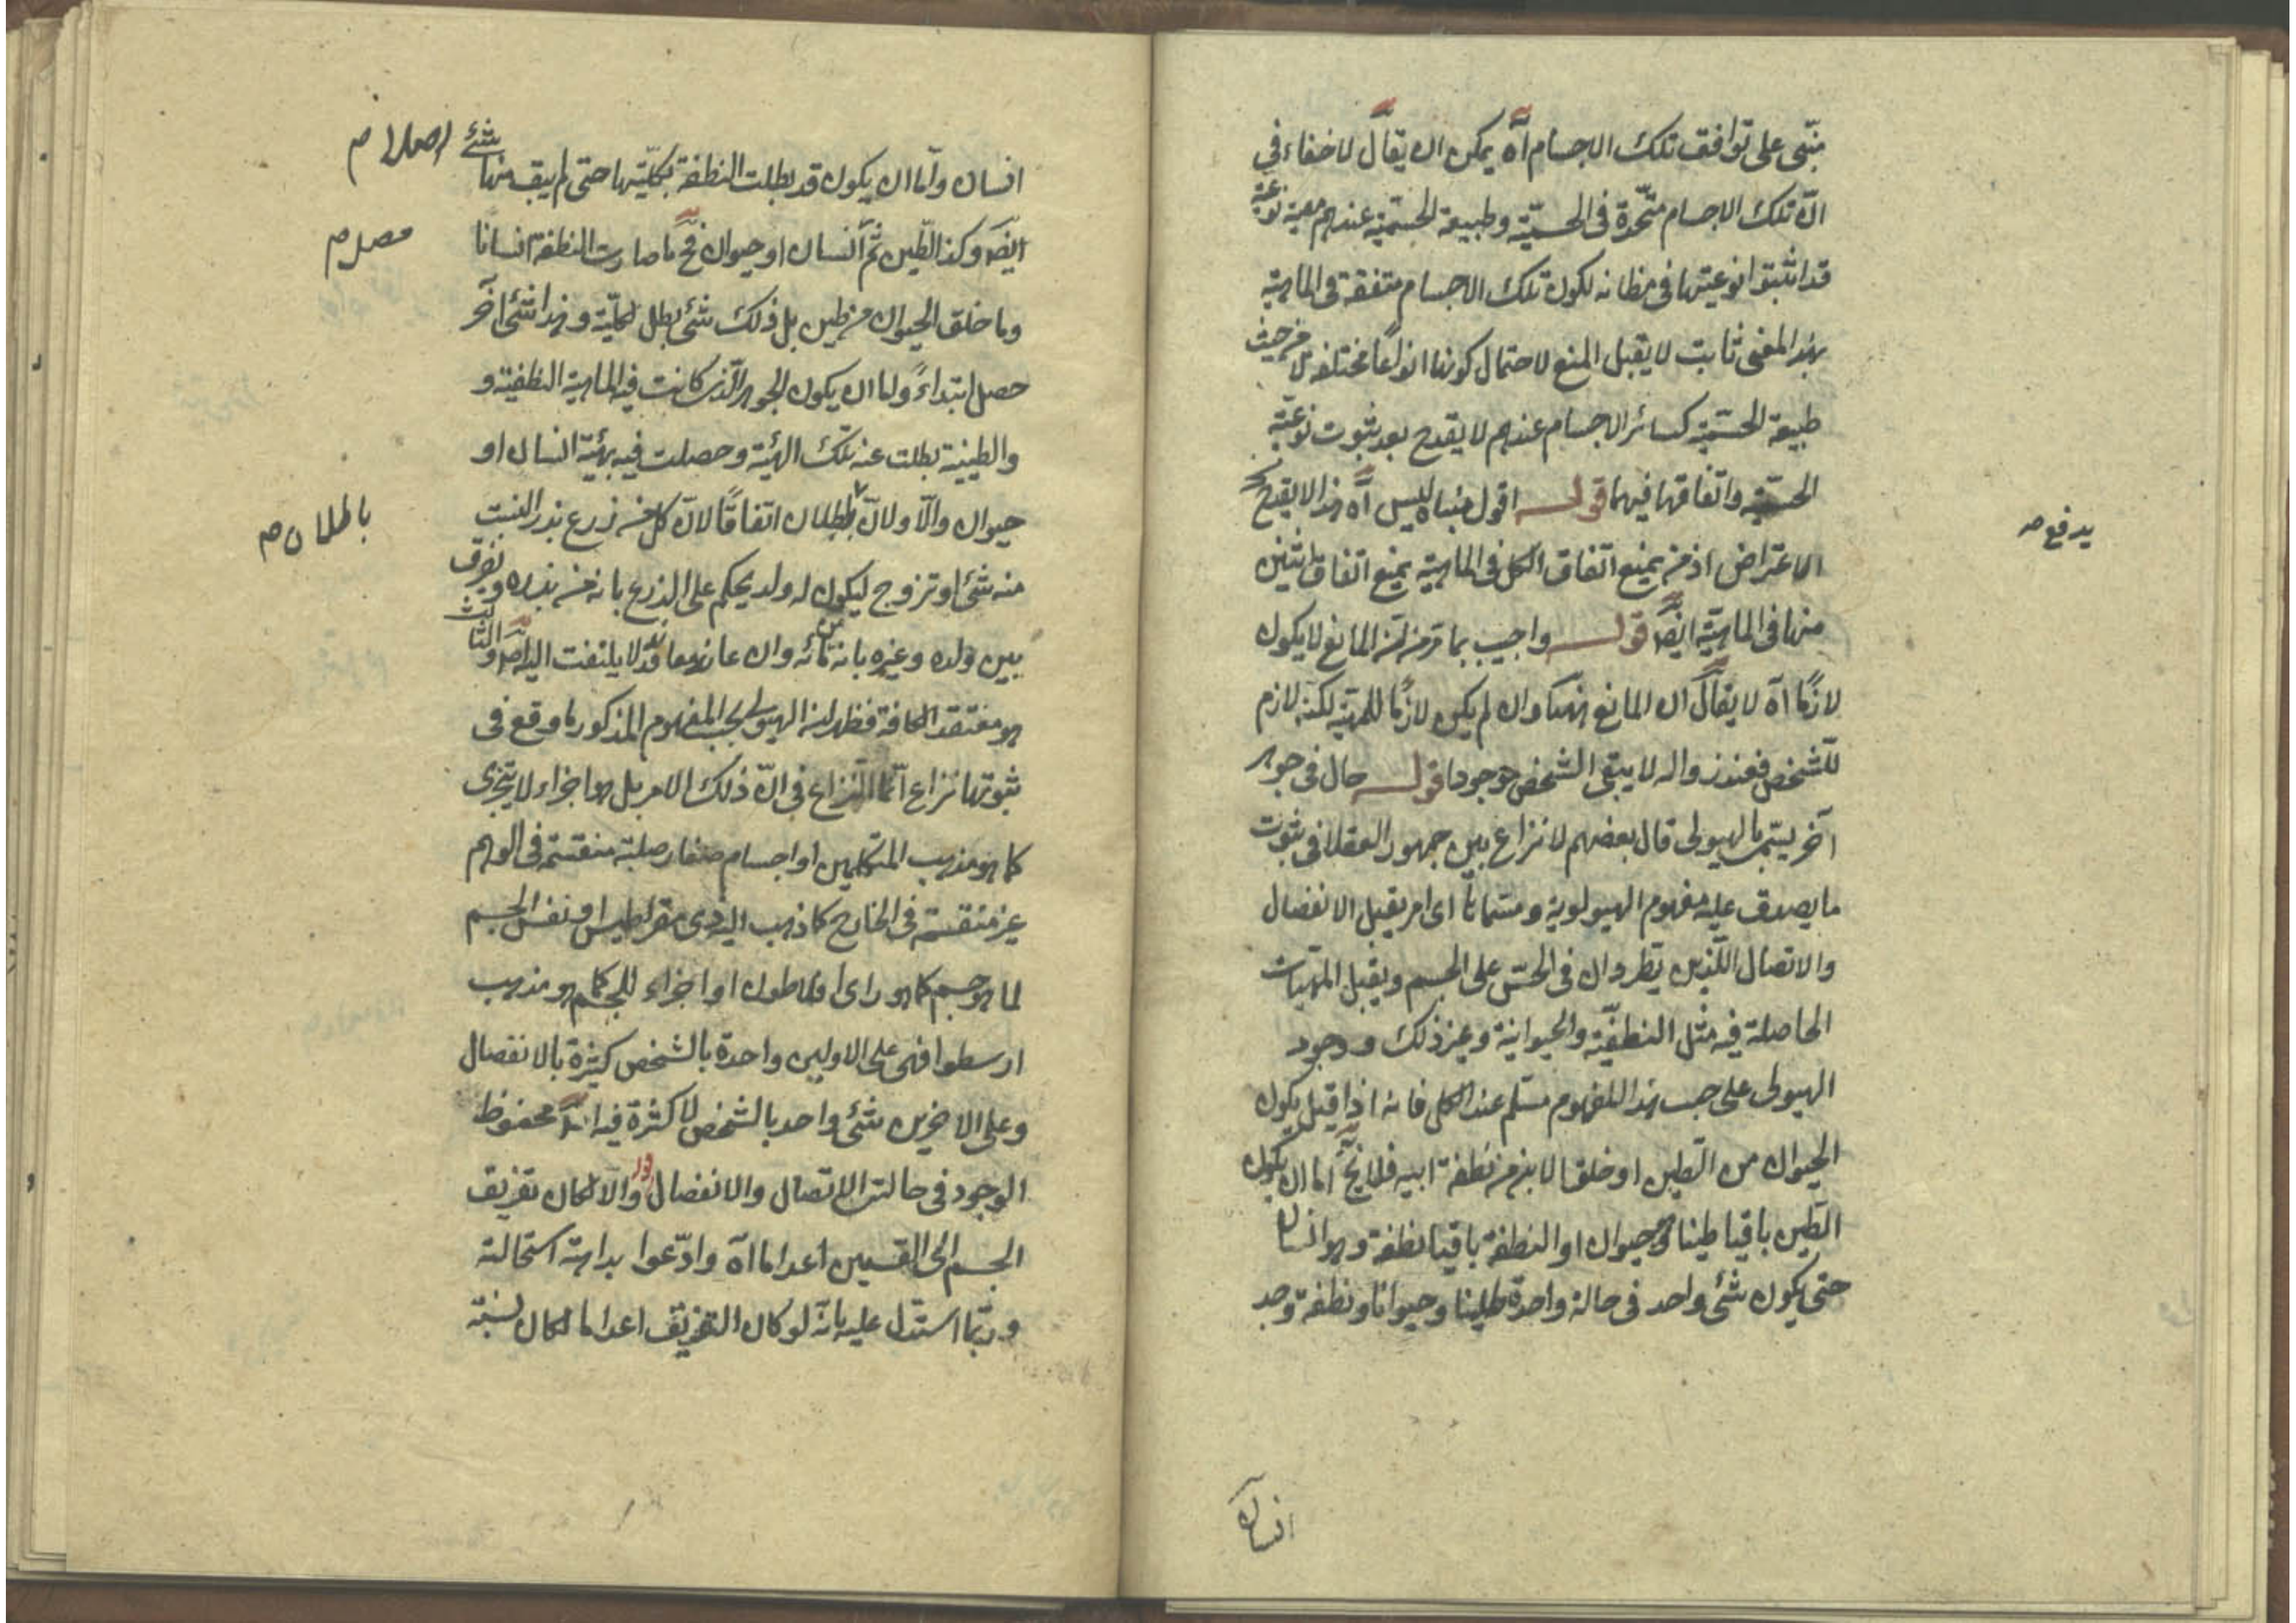 مبنى على توافق تلك الاجسام آه يمكن ان يقال لا خفاء في
ان تلك الاجسام متحدة في الجسمية وطبيعة الجسمية عندهم معينة نوعية
قد اثبتوا نوعيتها في مظانه لكون تلك الاجسام متفقة في الماهية
بهذا المعنى ثابت لا يقبل المنع لاحتمال كونها انواعًا مختلفة لا من حيث
طبيعة الجسمية كسائر الاجسام عندهم لا يقدح بعد ثبوت نوعية
الجسمية واتفاقها فيها قوله اقول مبناه ليس آه هذا لا يقدح
يدفع صح
الاعتراض اذ من يمنع اتفاق الكل في الماهية يمنع اتفاق اثنين
منها في الماهية ايضا قوله واجيب بما مر من ان المانع لا يكون
لازمًا آه لا يقال ان المانع ههنا وان لم يكن لازمًا للمهية لكنه لازم
للشخص فعند زواله لا يبقى الشخص موجودا قوله حال في جوهر
آخر يسمى بالهيولى قال بعضهم لا نزاع بين جمهور العقلا في ثبوت
ما يصدق عليه مفهوم الهيولوية ومسماتا اى امر يقبل الانفصال
والاتصال اللذين يطردان في الحسّ على الجسم ويقبل الهيئات
الحاصلة فيه مثل النطفية والحيوانية وغير ذلك ووجود
الهيولى على حسب هذا المفهوم مسلم عند الكل فانه اذا قيل يكون
الحيوان من الطين او خلق الابن من نطفة ابيه فلا يخ اما ان يكون
الطين باقيا طينا وهو حيوان او النطفة باقيا نطفة وهو انسان
حتى يكون شئ واحد في حالة واحدة طينا وحيوانا ونطفة وجسد
انسان
انسان واما ان يكون قد بطلت النطفة بكليتها حتى لم يبق منها شئ
اصلا صح
ايض وكذا الطين ثم انسان او حيوان فح ما صارت النطفة انسانا
حصل صح
وما خلق الحيوان من طين بل ذلك شئ بطل بكليته وهذا شئ آخر
حصل ابتداءً واما ان يكون الجوهر الذى كانت فيه الماهية النطفية و
والطينية بطلت عنه تلك الهيئة وحصلت فيه هيئة انسان او
حيوان والاولان بطلان اتفاقًا لان كل من زرع بذر النبت
باطلان صح
منه شئ او تزوج ليكون له ولد يحكم على الزرع بانه من بذره ويفرق
بين ولده وغيره بانه من مائه وان عاند معاند لا يلتفت اليه والثالث
هو معتقد الكافة فظهر ان الهيولى بحسب المفهوم المذكور ما وقع في
ثبوتها نزاع انما النزاع في ان ذلك الامر بل هو اجزاء لا يتجزى
كما هو مذهب المتكلمين او اجسام صغار صلبة منقسمة في الوهم
غير منقسمة في الخارج كما ذهب اليه ذى مقراطيس او نفس الجسم
لما هو جسم كما هو راى افلاطون او اجزاء للجسم كما هو مذهب
ارسطو فهى على الاولين واحدة بالشخص كثيرة بالانفصال
وعلى الاخرين شئ واحد بالشخص لا كثرة فيه محفوظ
الوجود في حالتى الاتصال والانفصال قوله والا لكان تفريق
الجسم الى القسمين اعداما آه وادّعوا بداهة استحالته
وربما استدل عليه بانه لو كان التفريق اعداما لكان نسبة